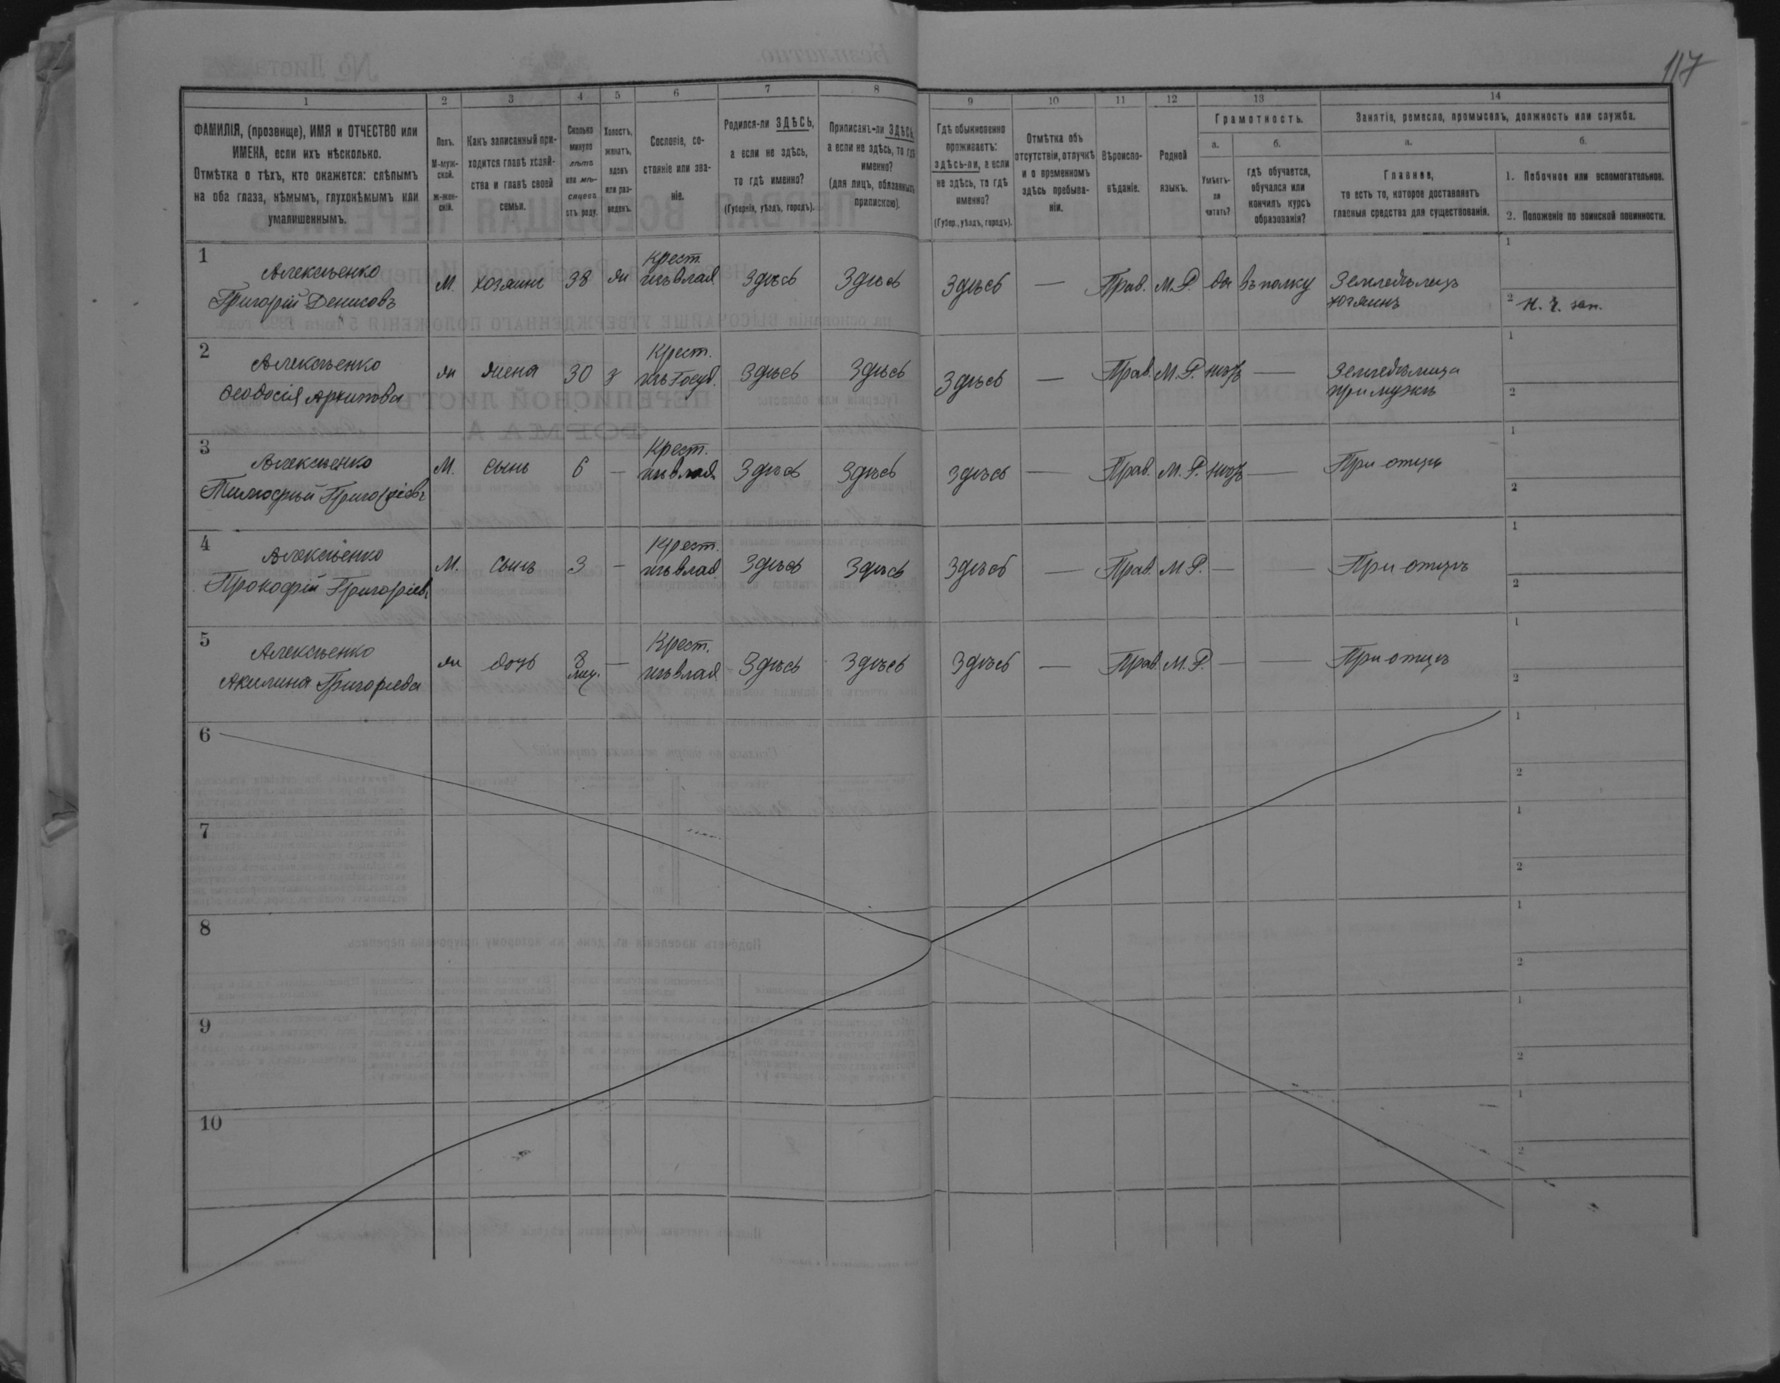 117
1 2 3 4 5 6 7 8 9 10 11 12 13 14
ФАМИЛІЯ, (прозвище), ИМЯ и ОТЧЕСТВО или
ИМЕНА, если ихъ нѣсколько.
Отмѣтка о тѣхъ, кто окажется: слѣпымъ
на оба глаза, нѣмымъ, глухонѣмымъ или
умалишеннымъ.
Полъ.
М-муж-
ской.
Ж-жен-
скій.
Какъ записанный при-
ходится главѣ хозяй-
ства и главѣ своей
семьи.
Сколько
минуло
лѣтъ
или мѣ-
сяцевъ
отъ роду.
Холостъ,
женатъ,
вдовъ
или раз-
веденъ.
Сословіе, со-
стояніе или зва-
ніе.
Родился-ли ЗДѢСЬ,
а если не здѣсь,
то гдѣ именно?
(Губернія, уѣздъ, городъ).
Приписанъ-ли ЗДѢСЬ,
а если не здѣсь, то гдѣ
именно?
(для лицъ, обязанныхъ
припискою).
Гдѣ обыкновенно
проживаетъ:
здѣсь-ли, а если
не здѣсь, то гдѣ
именно?
(Губер., уѣздъ, городъ).
Отмѣтка объ
отсутствіи, отлучкѣ
и о временномъ
здѣсь пребыва-
ніи.
Вѣроиспо-
вѣданіе.
Родной
языкъ.
Грамотность.
а.
Умѣетъ-
ли
читать?
б.
гдѣ обучается,
обучался или
кончилъ курсъ
образованія?
Занятіе, ремесло, промыселъ, должность или служба.
а.
Главное,
то есть то, которое доставляетъ
главныя средства для существованія.
б.
1. Побочное или вспомогательное.
2. Положеніе по воинской повинности.
1 Алексѣенко Григорій Денисовъ М. хозяинъ 38 ж Крест. изъ влад. Здѣсь Здѣсь Здѣсь — Прав. М.Р. да въ полку Земледѣлецъ хозяинъ 1
2 н. ч. зап.
2 Алексѣенко Ѳеодосія Архипова ж жена 30 з Крест. изъ Госуд. Здѣсь Здѣсь Здѣсь — Прав. М.Р. нѣтъ — Земледѣлица при мужѣ 1
2
3 Алексѣенко Тимоѳей Григоріевъ М. сынъ 6 — Крест. изъ влад. Здѣсь Здѣсь Здѣсь — Прав. М.Р. нѣтъ — При отцѣ 1
2
4 Алексѣенко Прокофій Григоріевъ М. сынъ 3 — Крест. изъ влад. Здѣсь Здѣсь Здѣсь — Прав. М.Р. — — При отцѣ 1
2
5 Алексѣенко Акилина Григоріева ж дочь 8 мѣс. — Крест. изъ влад. Здѣсь Здѣсь Здѣсь — Прав. М.Р. — — При отцѣ 1
2
6 1
2
7 1
2
8 1
2
9 1
2
10 1
2